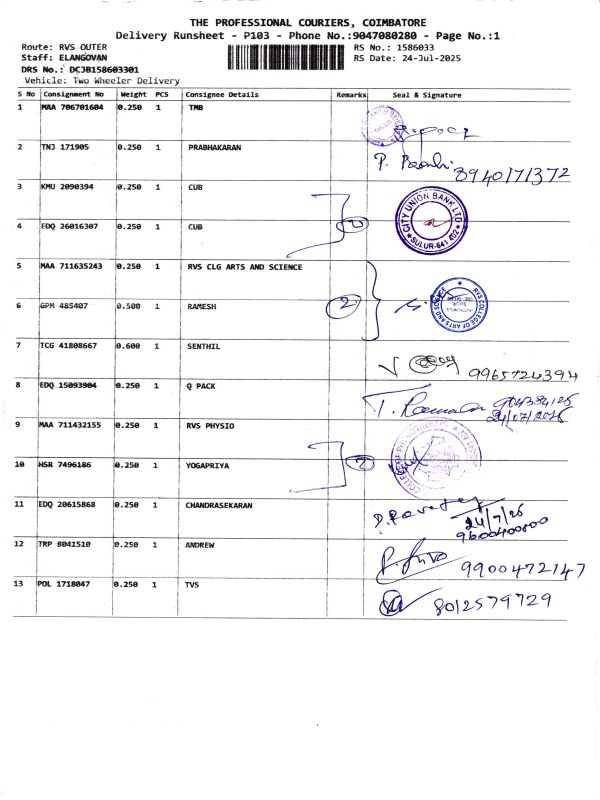 THE PROFESSIONAL COURIERS, COIMBATORE
Delivery Runsheet - P103 - Phone No.:9047080280 - Page No.:1
Route: RVS OUTER
RS No.: 1586033
Staff: ELANGOVAN
RS Date: 24-Jul-2025
DRS No.: DCJB158603301
Vehicle: Two Wheeler Delivery
S No Consignment No Weight PCS Consignee Details Remarks Seal & Signature
1 MAA 706701604 0.250 1 TMB
2 TNJ 171905 0.250 1 PRABHAKARAN
8940171372
3 KMU 2090394 0.250 1 CUB
4 EDQ 26016307 0.250 1 CUB 2
CITY UNION BANK LTD
SULUR-641 402
5 MAA 711635243 0.250 1 RVS CLG ARTS AND SCIENCE
6 GPM 485407 0.500 1 RAMESH 2
RVS COLLEGE OF ARTS AND SCIENCE
7 TCG 41808667 0.600 1 SENTHIL
9965724394
8 EDQ 15093904 0.250 1 Q PACK
24/07/2025
9 MAA 711432155 0.250 1 RVS PHYSIO
10 HSR 7496186 0.250 1 YOGAPRIYA 2
11 EDQ 20615868 0.250 1 CHANDRASEKARAN
24/7/25
9600400800
12 TRP 8041510 0.250 1 ANDREW
9900472147
13 POL 1718047 0.250 1 TVS
8012579729